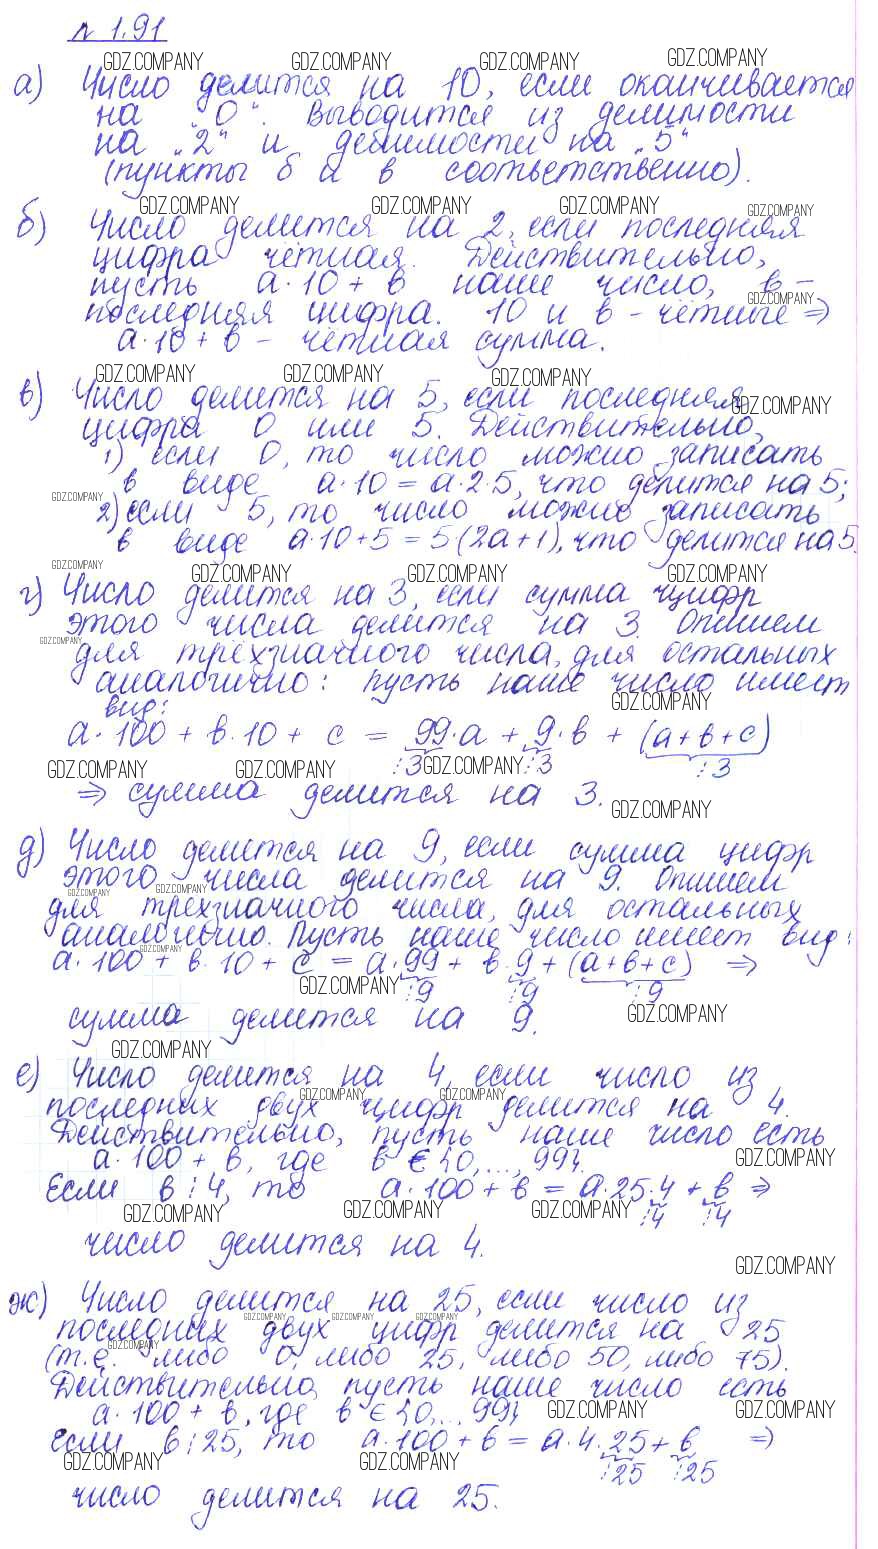 № 1.91
GDZ.COMPANY GDZ.COMPANY GDZ.COMPANY GDZ.COMPANY
а) Число делится на 10, если оканчивается
на "0". Выводится из делимости
на "2" и делимости на "5"
(пункты б и в соответственно).
GDZ.COMPANY GDZ.COMPANY GDZ.COMPANY GDZ.COMPANY
б) Число делится на 2, если последняя
цифра чётная. Действительно,
пусть a·10 + b наше число, b –
GDZ.COMPANY
последняя цифра. 10 и b – чётные ⇒
a·10 + b – чётная сумма.
GDZ.COMPANY GDZ.COMPANY GDZ.COMPANY
в) Число делится на 5, если последняя
GDZ.COMPANY
цифра 0 или 5. Действительно,
1) если 0, то число можно записать
в виде a·10 = a·2·5, что делится на 5;
GDZ.COMPANY
2) если 5, то число можно записать
в виде a·10+5 = 5·(2a+1), что делится на 5.
GDZ.COMPANY GDZ.COMPANY GDZ.COMPANY GDZ.COMPANY
г) Число делится на 3, если сумма цифр
этого числа делится на 3. Опишем
GDZ.COMPANY
для трёхзначного числа, для остальных
аналогично: пусть наше число имеет
GDZ.COMPANY
вид:
a·100 + b·10 + c = 99·a + 9·b + (a+b+c)
⋮3 ⋮3 ⋮3
GDZ.COMPANY GDZ.COMPANY GDZ.COMPANY
⇒ сумма делится на 3.
GDZ.COMPANY
д) Число делится на 9, если сумма цифр
этого числа делится на 9. Опишем
GDZ.COMPANY GDZ.COMPANY
для трехзначного числа, для остальных
аналогично. Пусть наше число имеет вид:
GDZ.COMPANY
a·100 + b·10 + c = a·99 + b·9 + (a+b+c) ⇒
⋮9 ⋮9 ⋮9
GDZ.COMPANY
сумма делится на 9.
GDZ.COMPANY
GDZ.COMPANY
е) Число делится на 4, если число из
GDZ.COMPANY GDZ.COMPANY
последних двух цифр делится на 4.
Действительно, пусть наше число есть
a·100 + b, где b ∈ {0,...,99}.
GDZ.COMPANY
Если b ⋮ 4, то a·100 + b = a·25·4 + b ⇒
⋮4 ⋮4
GDZ.COMPANY GDZ.COMPANY GDZ.COMPANY
число делится на 4.
GDZ.COMPANY
ж) Число делится на 25, если число из
GDZ.COMPANY GDZ.COMPANY GDZ.COMPANY
последних двух цифр делится на 25
GDZ.COMPANY
(т.е. либо 0, либо 25, либо 50, либо 75).
Действительно, пусть наше число есть
a·100 + b, где b ∈ {0,...,99}
GDZ.COMPANY GDZ.COMPANY
если b ⋮ 25, то a·100 + b = a·4·25 + b ⇒
⋮25 ⋮25
GDZ.COMPANY GDZ.COMPANY
число делится на 25.